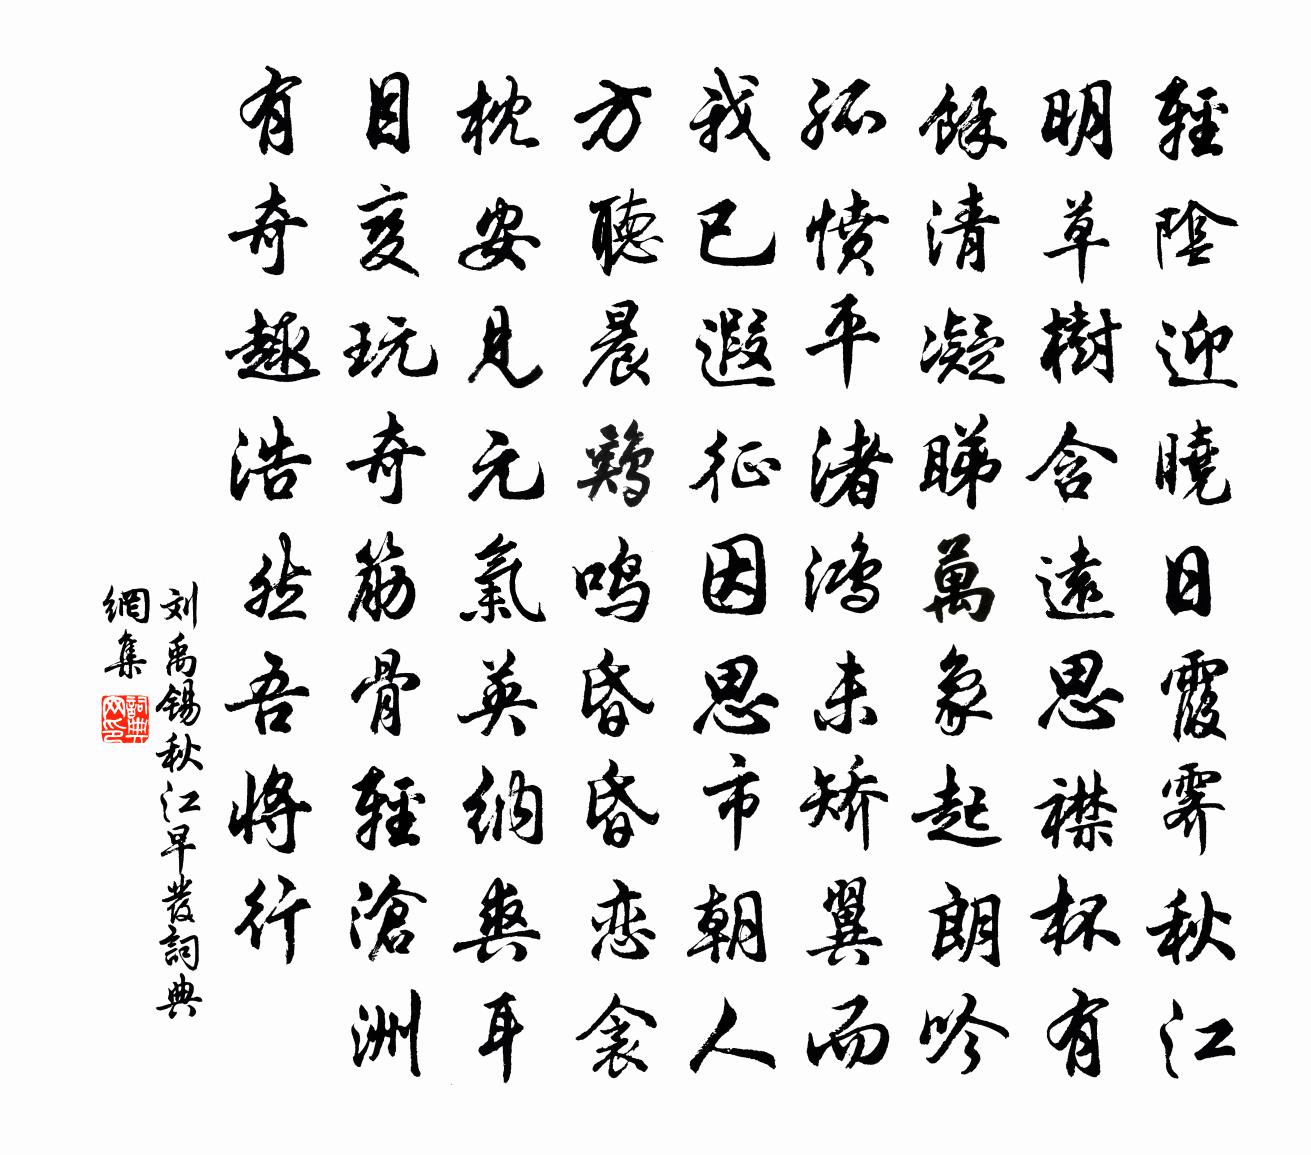 輕陰迎曉日霞霽秋江
明草樹含遠思襟杯有
餘清凝睇萬象起朗吟
孤憤平渚鴻未矯翼而
我已遐征因思市朝人
方聽晨鷄鳴昏昏恋衾
枕安見元氣英納爽耳
目変玩奇筋骨輕滄洲
有奇趣浩然吾將行
刘禹錫秋江早發詞典
網集
詞典
网印